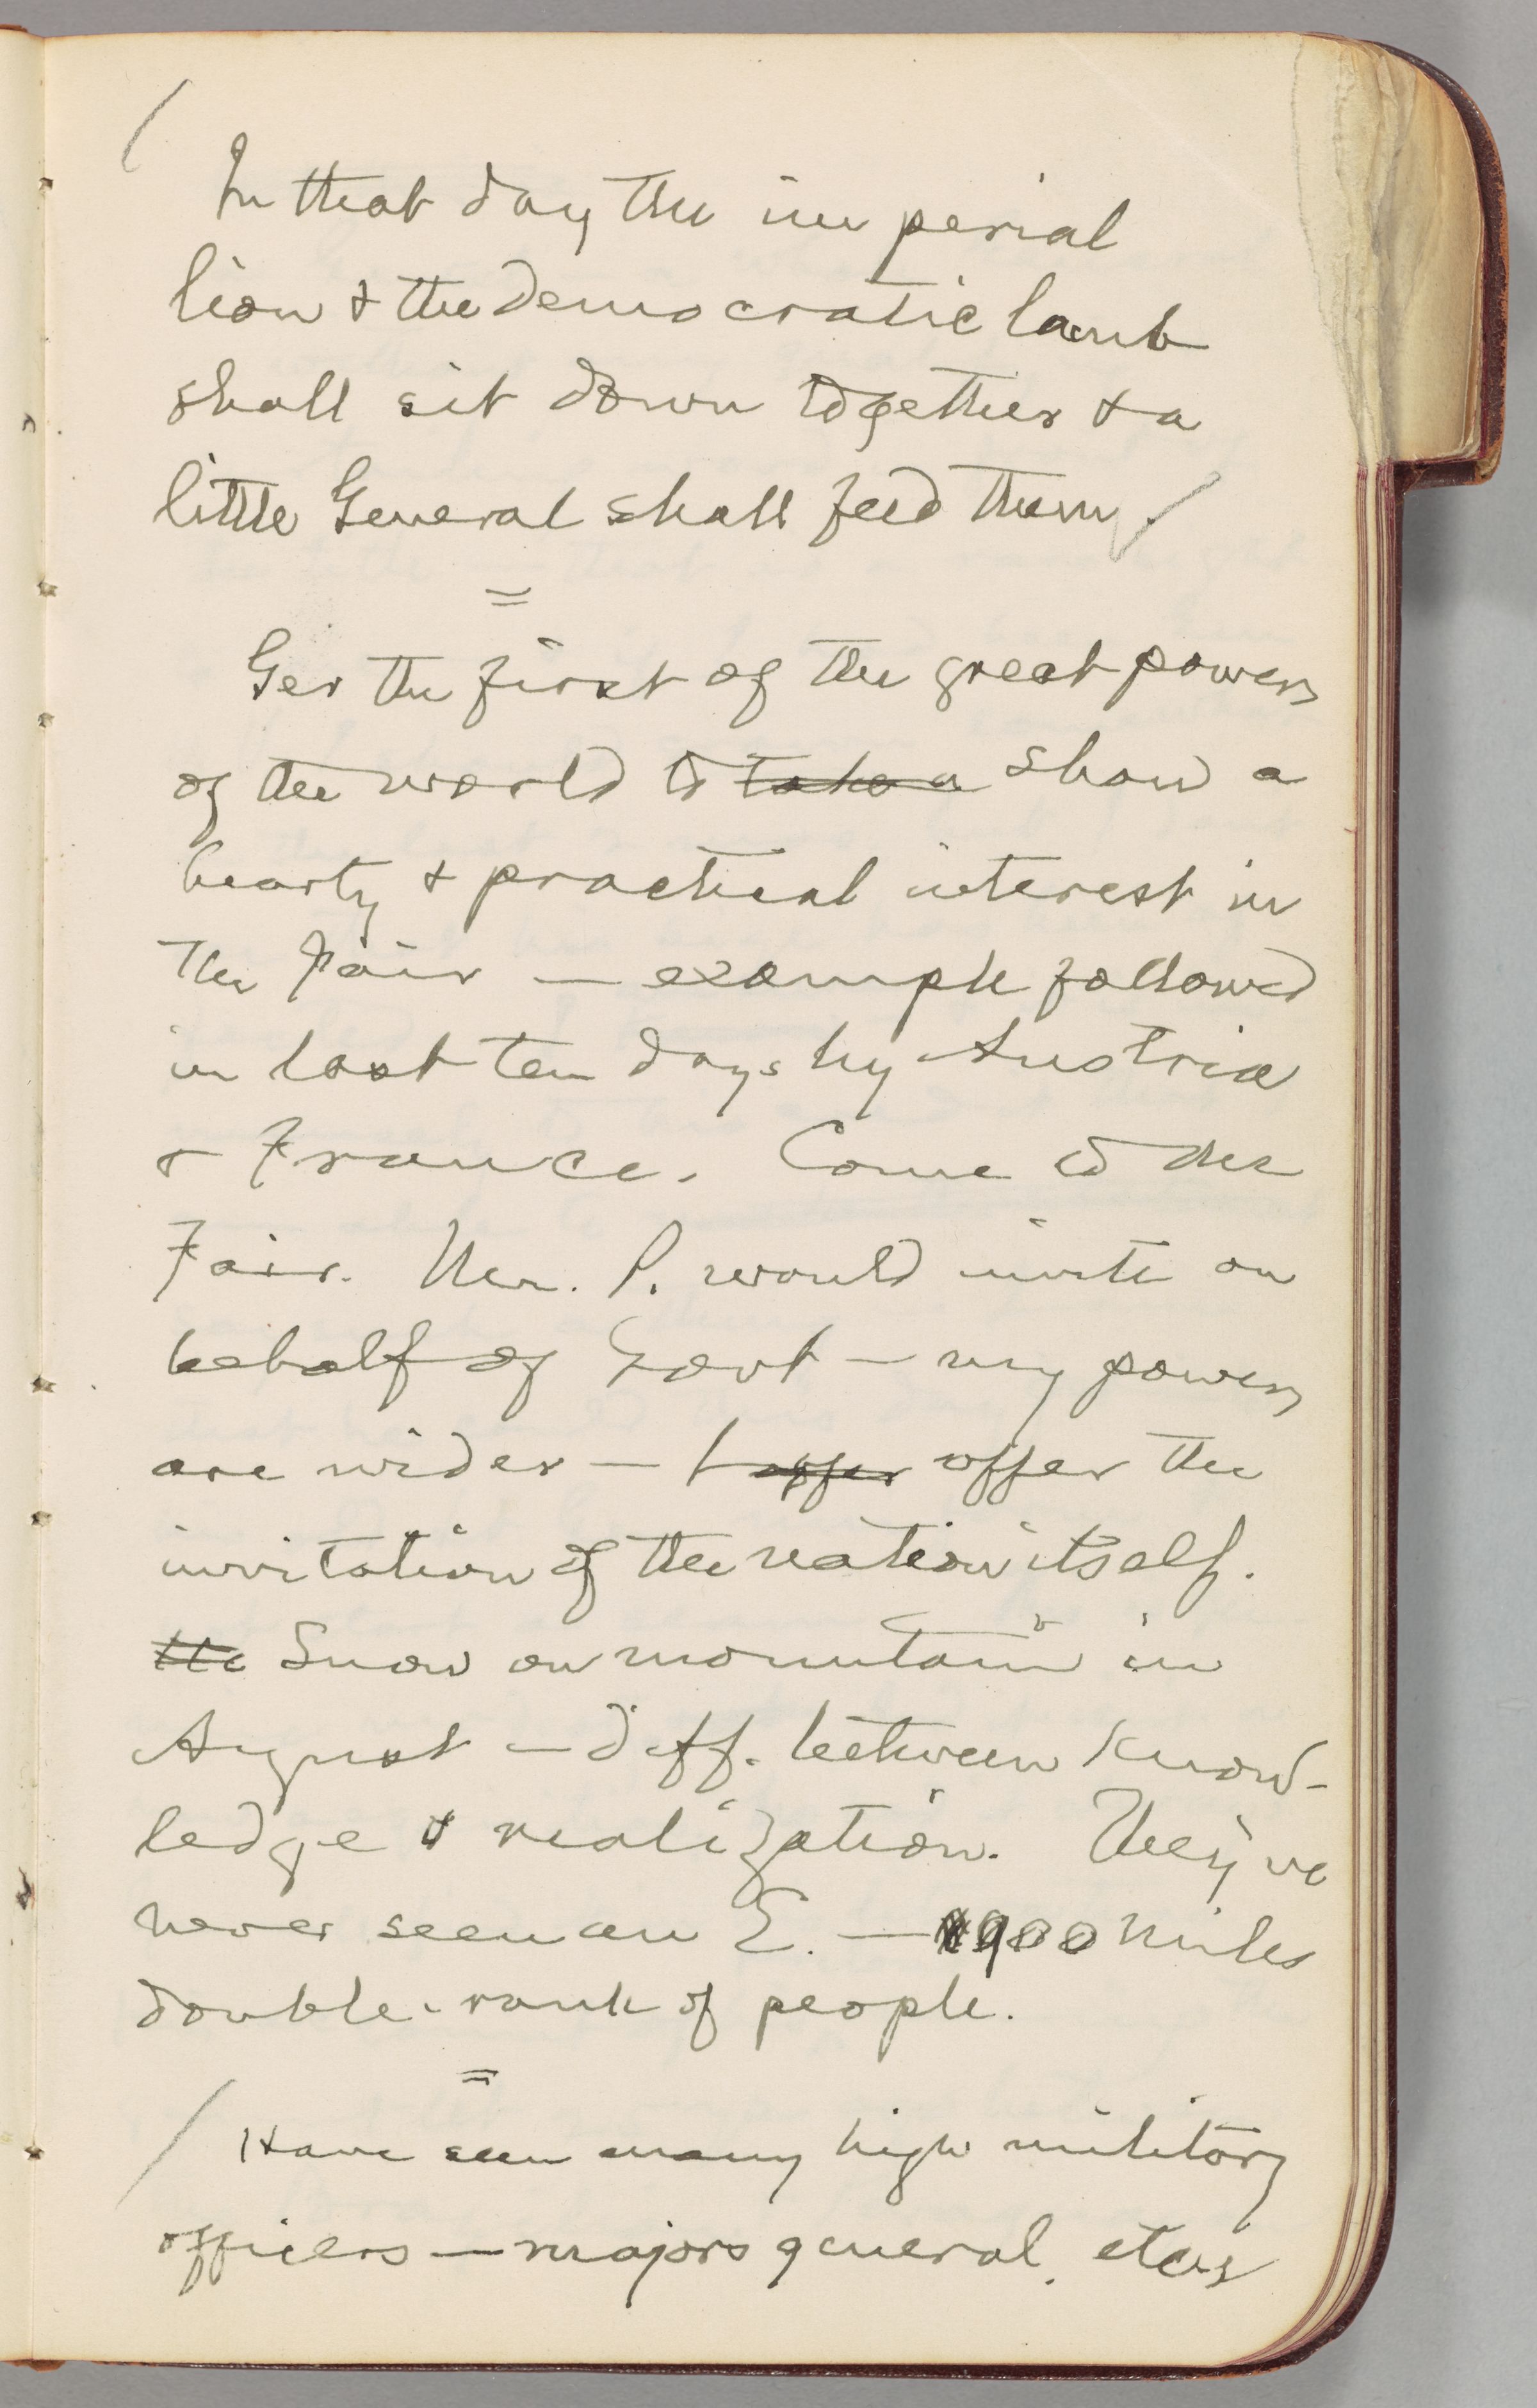 In that day the imperial
lion & the democratic lamb
shall sit down together & a
little General shall feed them.
=
Ger the first of the great powers
of the world to take a show a
hearty & practical interest in
the Fair — example followed
in last ten days by Austria
& France. Come to the
Fair. Mr. P. would invite on
behalf of Govt — my powers
are wider — I offer offer the
invitation of the nation itself.
the Snow on mountain in
August — diff. between know-
ledge & realization. They've
never seen an E. — 900 miles
double-rank of people.
=
Have seen many high military
officers — majors general,